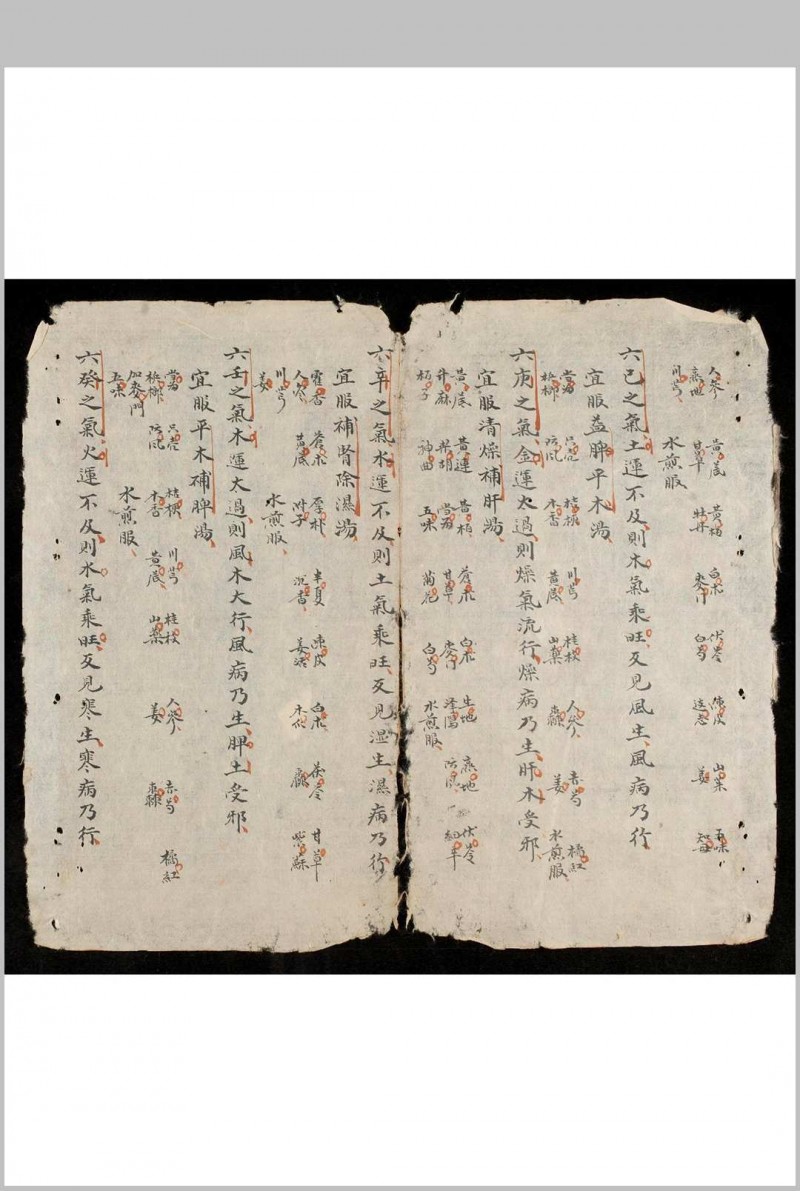 人參 黃芪 黃柏 白朮 伏苓 陳皮 山藥 五味
熟地 甘草 牡丹 麥門 白芍 遠志 姜 知母
川芎 水煎服
六己之氣土運不及則木氣乘旺反見風生風病乃行
宜服益脾平木湯
當歸 只壳 桔梗 川芎 桂枝 人參 赤芍 橘紅
梹榔 防風 木香 黃芪 山藥 棗 姜 水煎服
六庚之氣金運太過則燥氣流行燥病乃生肝木受邪
宜服清燥補肝湯
黃芪 黃連 黃柏 蒼朮 白朮 生地 熟地 伏苓
升麻 柴胡 當歸 甘草 麥門 澤瀉 防風 細辛
栢子 神曲 五味 菊花 白芍 水煎服
六辛之氣水運不及則土氣乘旺反見湿生濕病乃行
宜服補腎除濕湯
霍香 蒼朮 厚朴 半夏 陳皮 白朮 茯苓 甘草
人參 黃芪 附子 沉香 姜活 木瓜 紫蘇
川芎 水煎服
姜
六壬之氣木運太過則風木大行風病乃生脾土受邪
宜服平木補脾湯
當歸 只壳 桔梗 川芎 桂枝 人參 赤芍 橘紅
梹榔 防風 木香 黃芪 山藥 姜 棗
加麥門 水煎服
五味
六癸之氣火運不及則水氣乘旺反見寒生寒病乃行